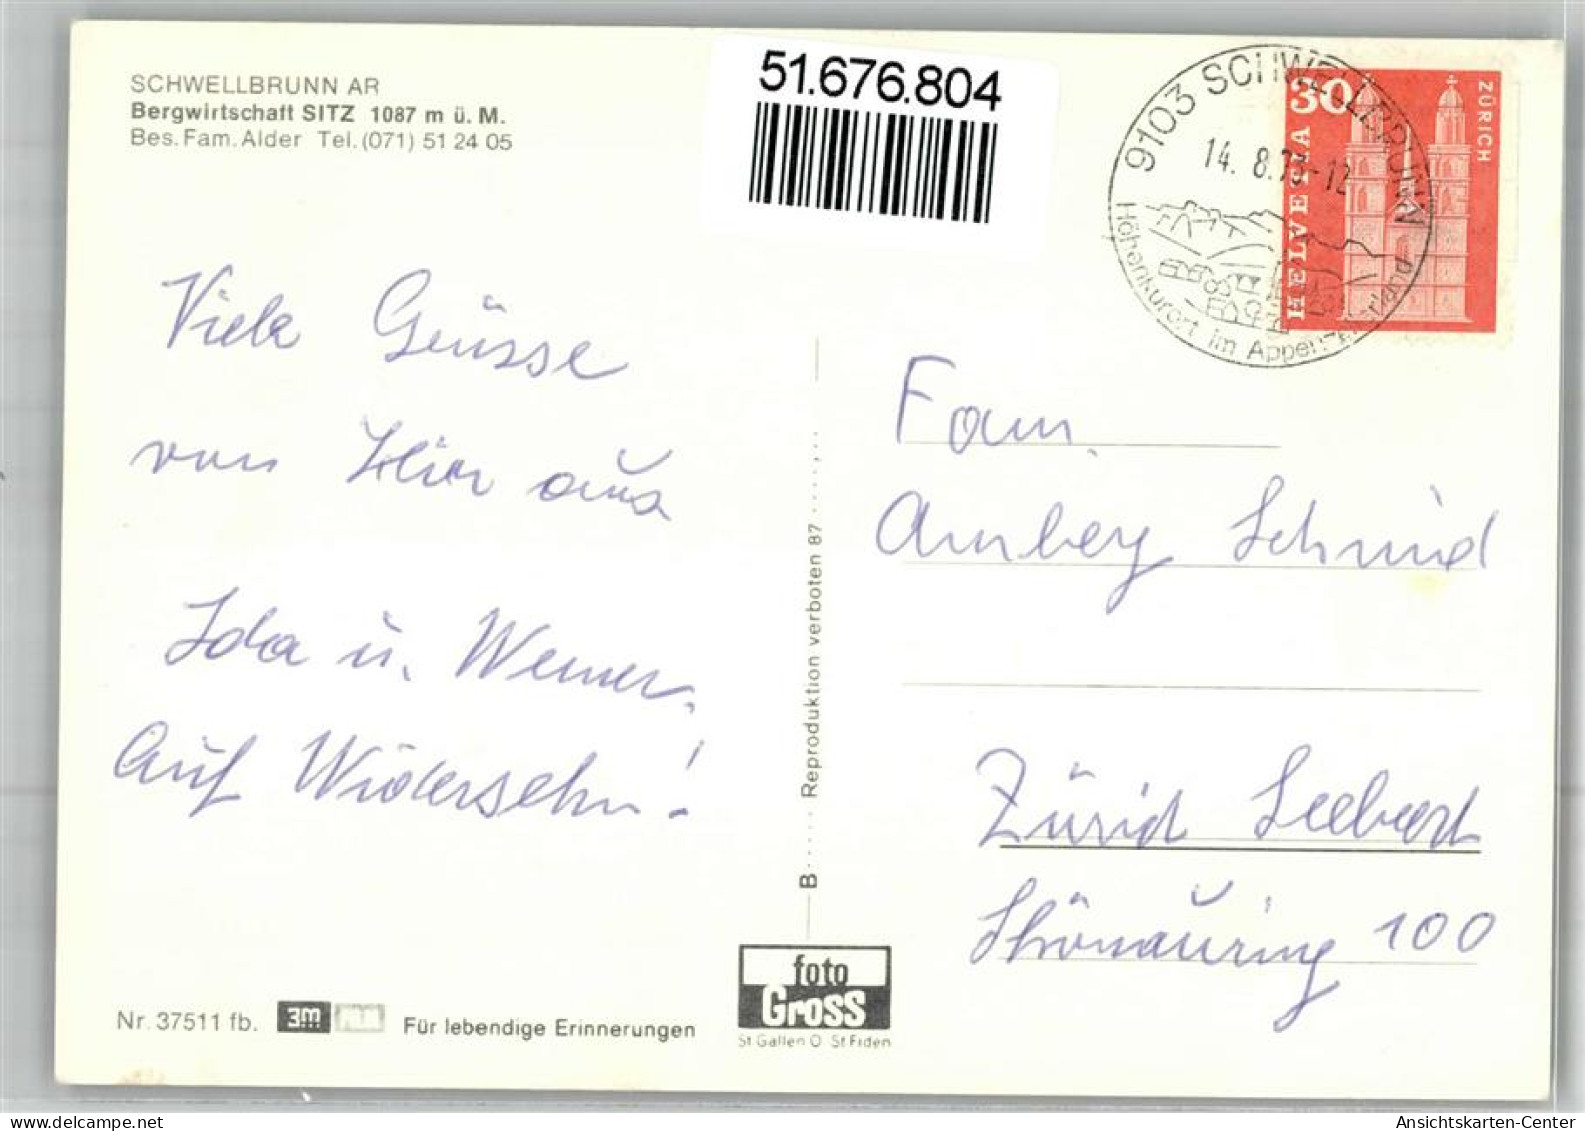 SCHWELLBRUNN AR
Bergwirtschaft SITZ 1087 m ü. M.
Bes. Fam. Alder Tel. (071) 51 24 05
51.676.804
9103 SCHWELLBRUNN
14. 8.73-12
Höhenkurort im Appenzellerland
30
HELVETIA
ZÜRICH
Viele Grüsse
von Hier aus
Ida u. Werner.
Auf Widersehn!
Fam.
Schmid
Zürich Seebach
Schönauring 100
B..... Reproduktion verboten 87
foto
Gross
St. Gallen O St Fiden
Nr. 37511 fb.
3m
Für lebendige Erinnerungen
Ansichtskarten-Center